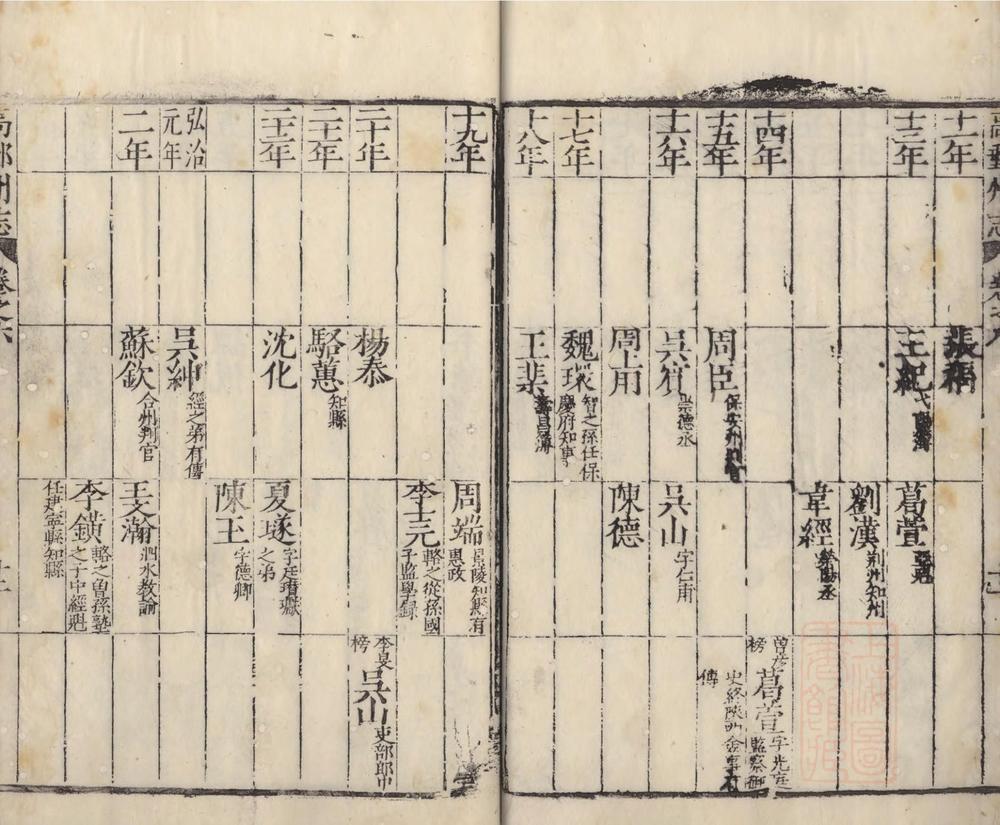 高郵州志
十二年
張福
十三年
王紀
葛萱
亞魁
劉漢
荆州知州
韋經
十四年
曾彦
榜
葛萱
字光庭
監察御
史終陝西僉事有
傳
十五年
周臣
保安州判官
十六年
吳㝷
崇德丞
吳山
字仁甫
周甫
陳德
十七年
魏環
智之孫任保
慶府知事
十八年
王棐
十九年
周端
景陵知縣有
惠政
李元
輅之從孫國
子監學録
二十年
楊泰
李旻
榜
吳山
吏部郎中
二十一年
駱蕙
知縣
二十二年
沈化
夏𤩄
字廷瑄瓛
之弟
陳玉
字德卿
弘治
元年
吳紳
經之弟有傳
二年
蘇欽
合州判官
王瀚
泗水教諭
李鐄
輅之曾孫塾
之子中經魁
任建寧縣知縣
高郵州志
卷之六